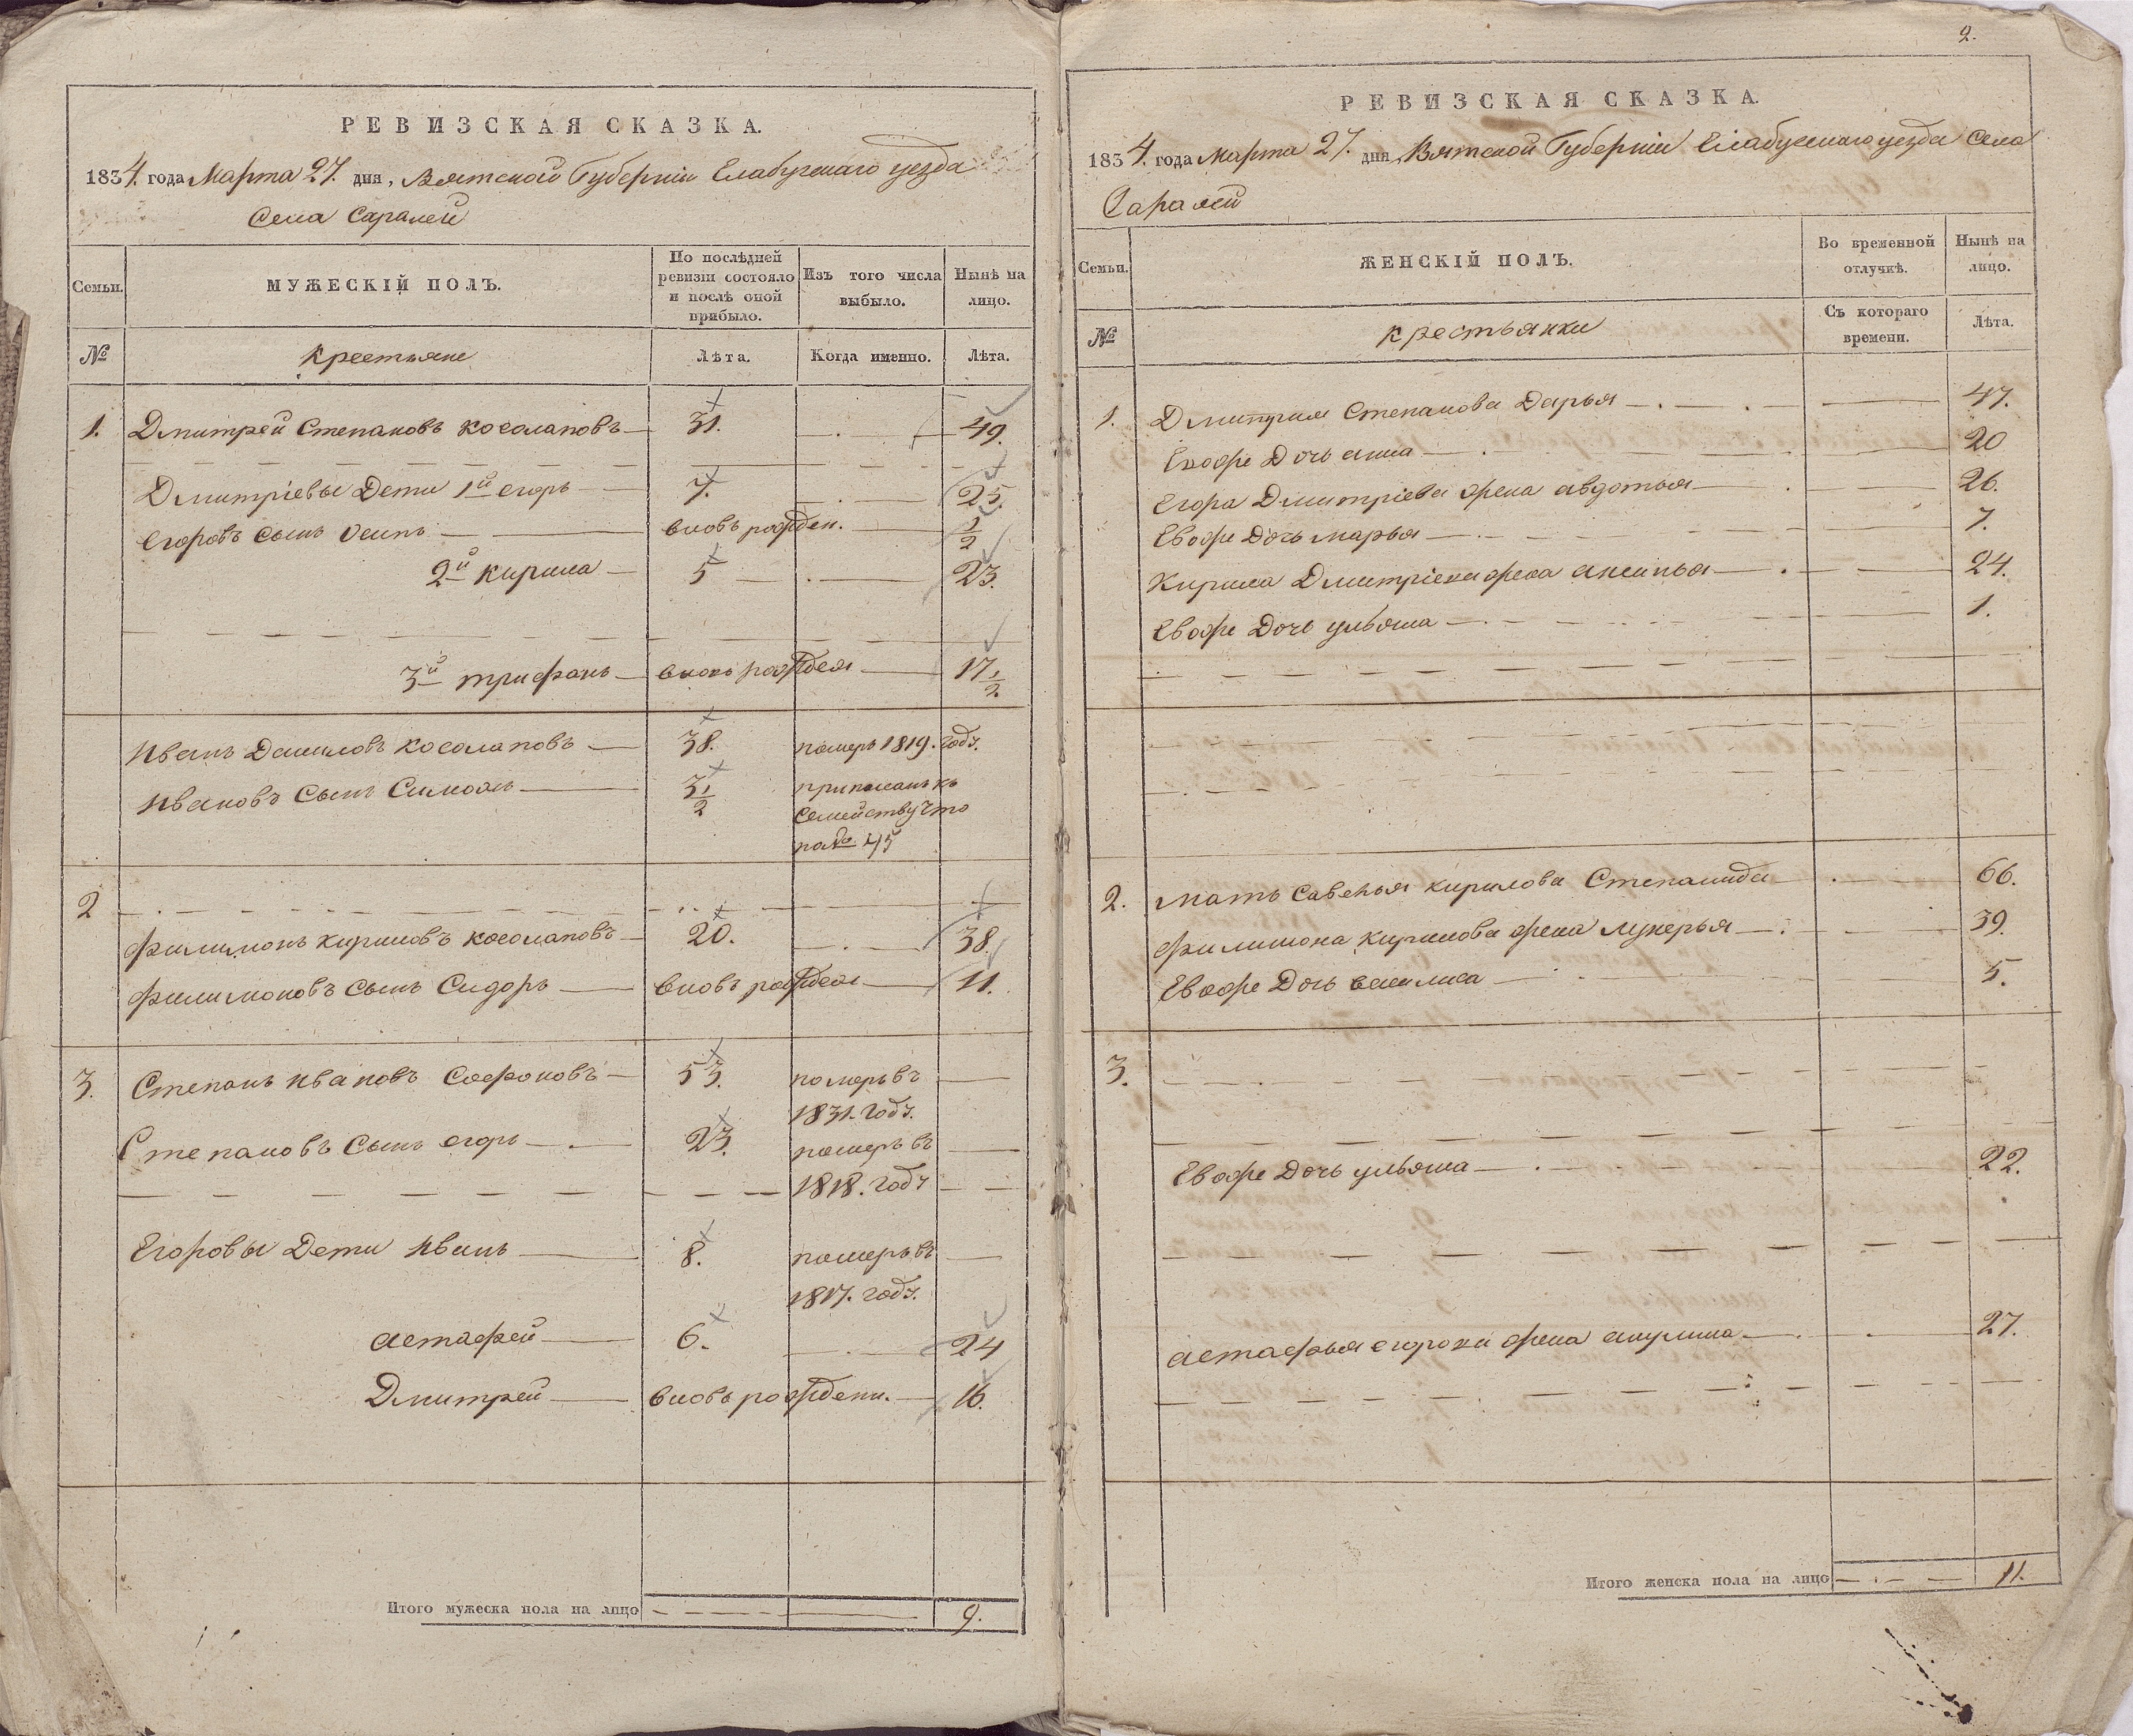 РЕВИЗСКАЯ СКАЗКА.
1834. года Марта 27. дня, Вятской Губернiи Елабугскаго уезда
Села Саралей
Семьи.
МУЖЕСКIЙ ПОЛЪ.
По послѣдней ревизiи состояло и послѣ оной прибыло.
Изъ того числа выбыло.
Нынѣ на лицо.
№
Крестьяне
Лѣта.
Когда именно.
Лѣта.
1. Дмитрей Степановъ Косолаповъ 31. 49.
Дмитрiевы Дети 1й егоръ 7. 25.
Егоровъ сынъ Осипъ вновь рожден. 1/2
2й Кирила 5 23.
3й трифанъ вновь рожден 17 1/2
Иванъ Даниловъ Косолаповъ 38. померъ 1819. годз.
Ивановъ Сынъ Симонъ 3 1/2 приписанъ къ
Семейству что
по № 45
2
Филимонъ Кириловъ Косолаповъ 20. 38.
Филимоновъ сынъ Сидоръ вновь рожден 11.
3. Степанъ Ивановъ Софоновъ 53. померъ въ
1831. годз.
Степановъ Сынъ егоръ 23. померъ въ
1818. годз
Егоровы Дети Иванъ 8. померъ въ
1817. годз.
Астафей 6. 24
Дмитрей вновь рожденн. 16.
Итого мужеска пола на лицо 9.
2.
РЕВИЗСКАЯ СКАЗКА.
1834. года Марта 27. дня, Вятской Губернiи Елабугскаго уезда Села
Саралей
Семьи.
ЖЕНСКIЙ ПОЛЪ.
Во временной отлучкѣ.
Нынѣ на лицо.
№
Крестьянки
Съ котораго времени.
Лѣта.
1. Дмитрия Степанова Дарья 47.
Евоже Дочь анна 20
Егора Дмитрiева жена авдотья 26.
Евоже Дочь марья 7.
Кирила Дмитрiева жена аксинья 24.
Евоже Дочь ульяна 1.
2. Мать Савелья Кирилова Степанида 66.
Филимона Кирилова жена лукерья 39.
Евоже Дочь василиса 5.
3.
Евоже Дочь ульяна 22.
Астафья егорова жена акулина 27.
Итого женска пола на лицо 11.